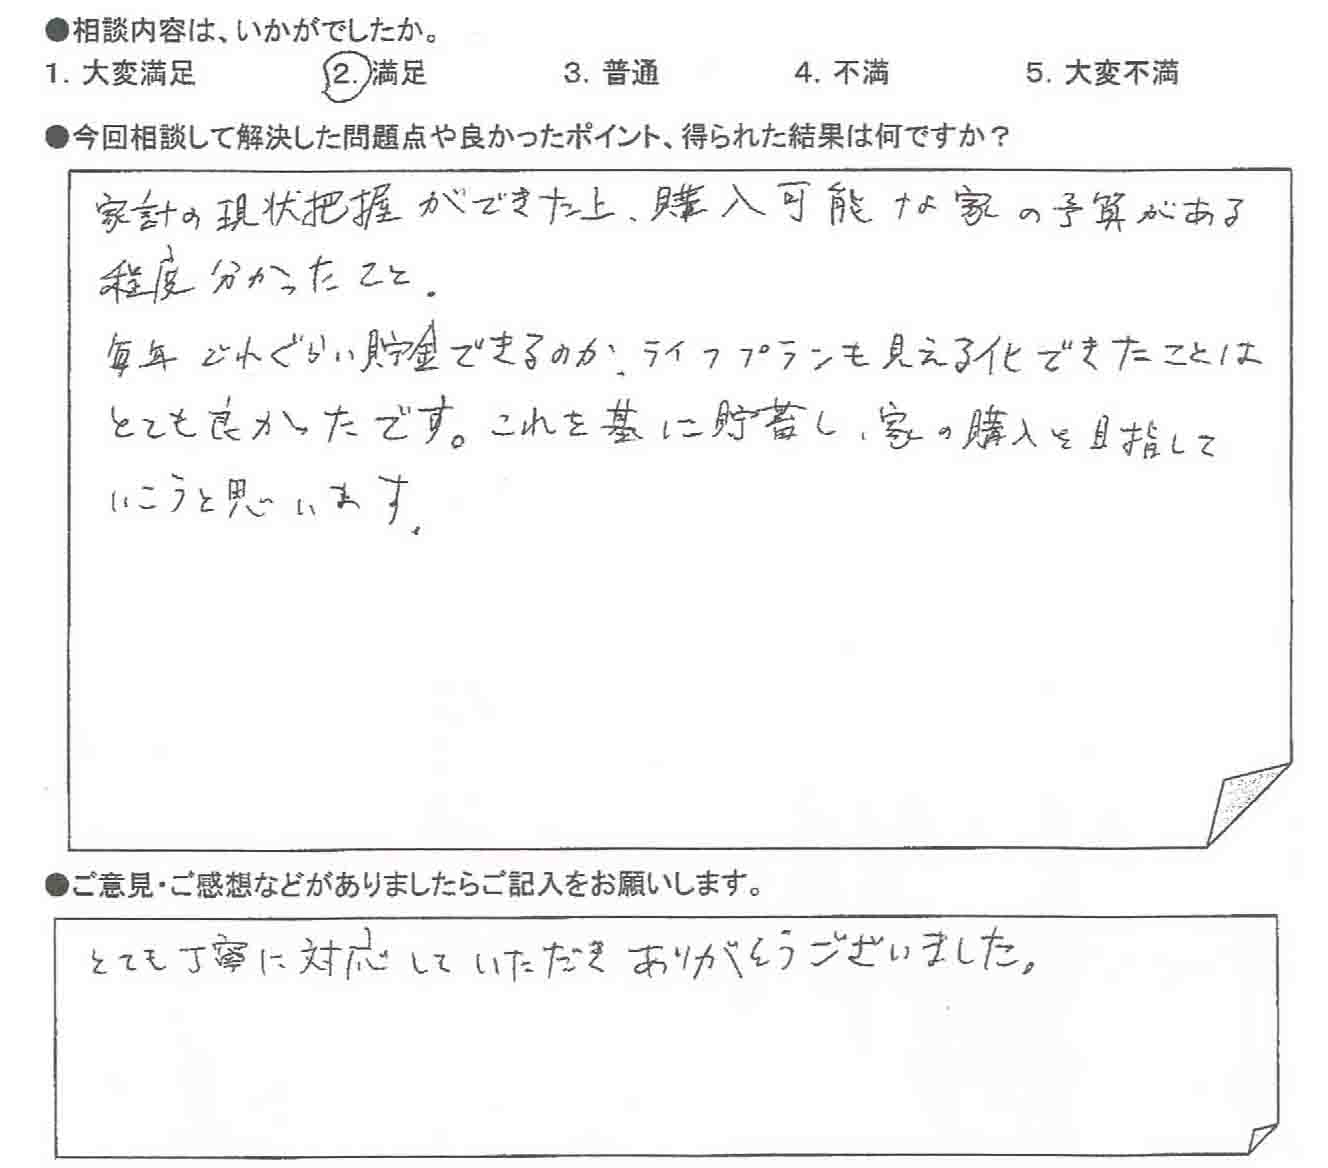 ●相談内容は、いかがでしたか。
1. 大変満足 2. 満足 3. 普通 4. 不満 5. 大変不満
●今回相談して解決した問題点や良かったポイント、得られた結果は何ですか？
家計の現状把握ができた上、購入可能な家の予算がある
程度分かったこと.
毎年どれぐらい貯金できるのか、ライフプランも見える化できたことは
とても良かったです。これを基に貯蓄し、家の購入を目指して
いこうと思います.
●ご意見・ご感想などがありましたらご記入をお願いします。
とても丁寧に対応していただきありがとうございました。